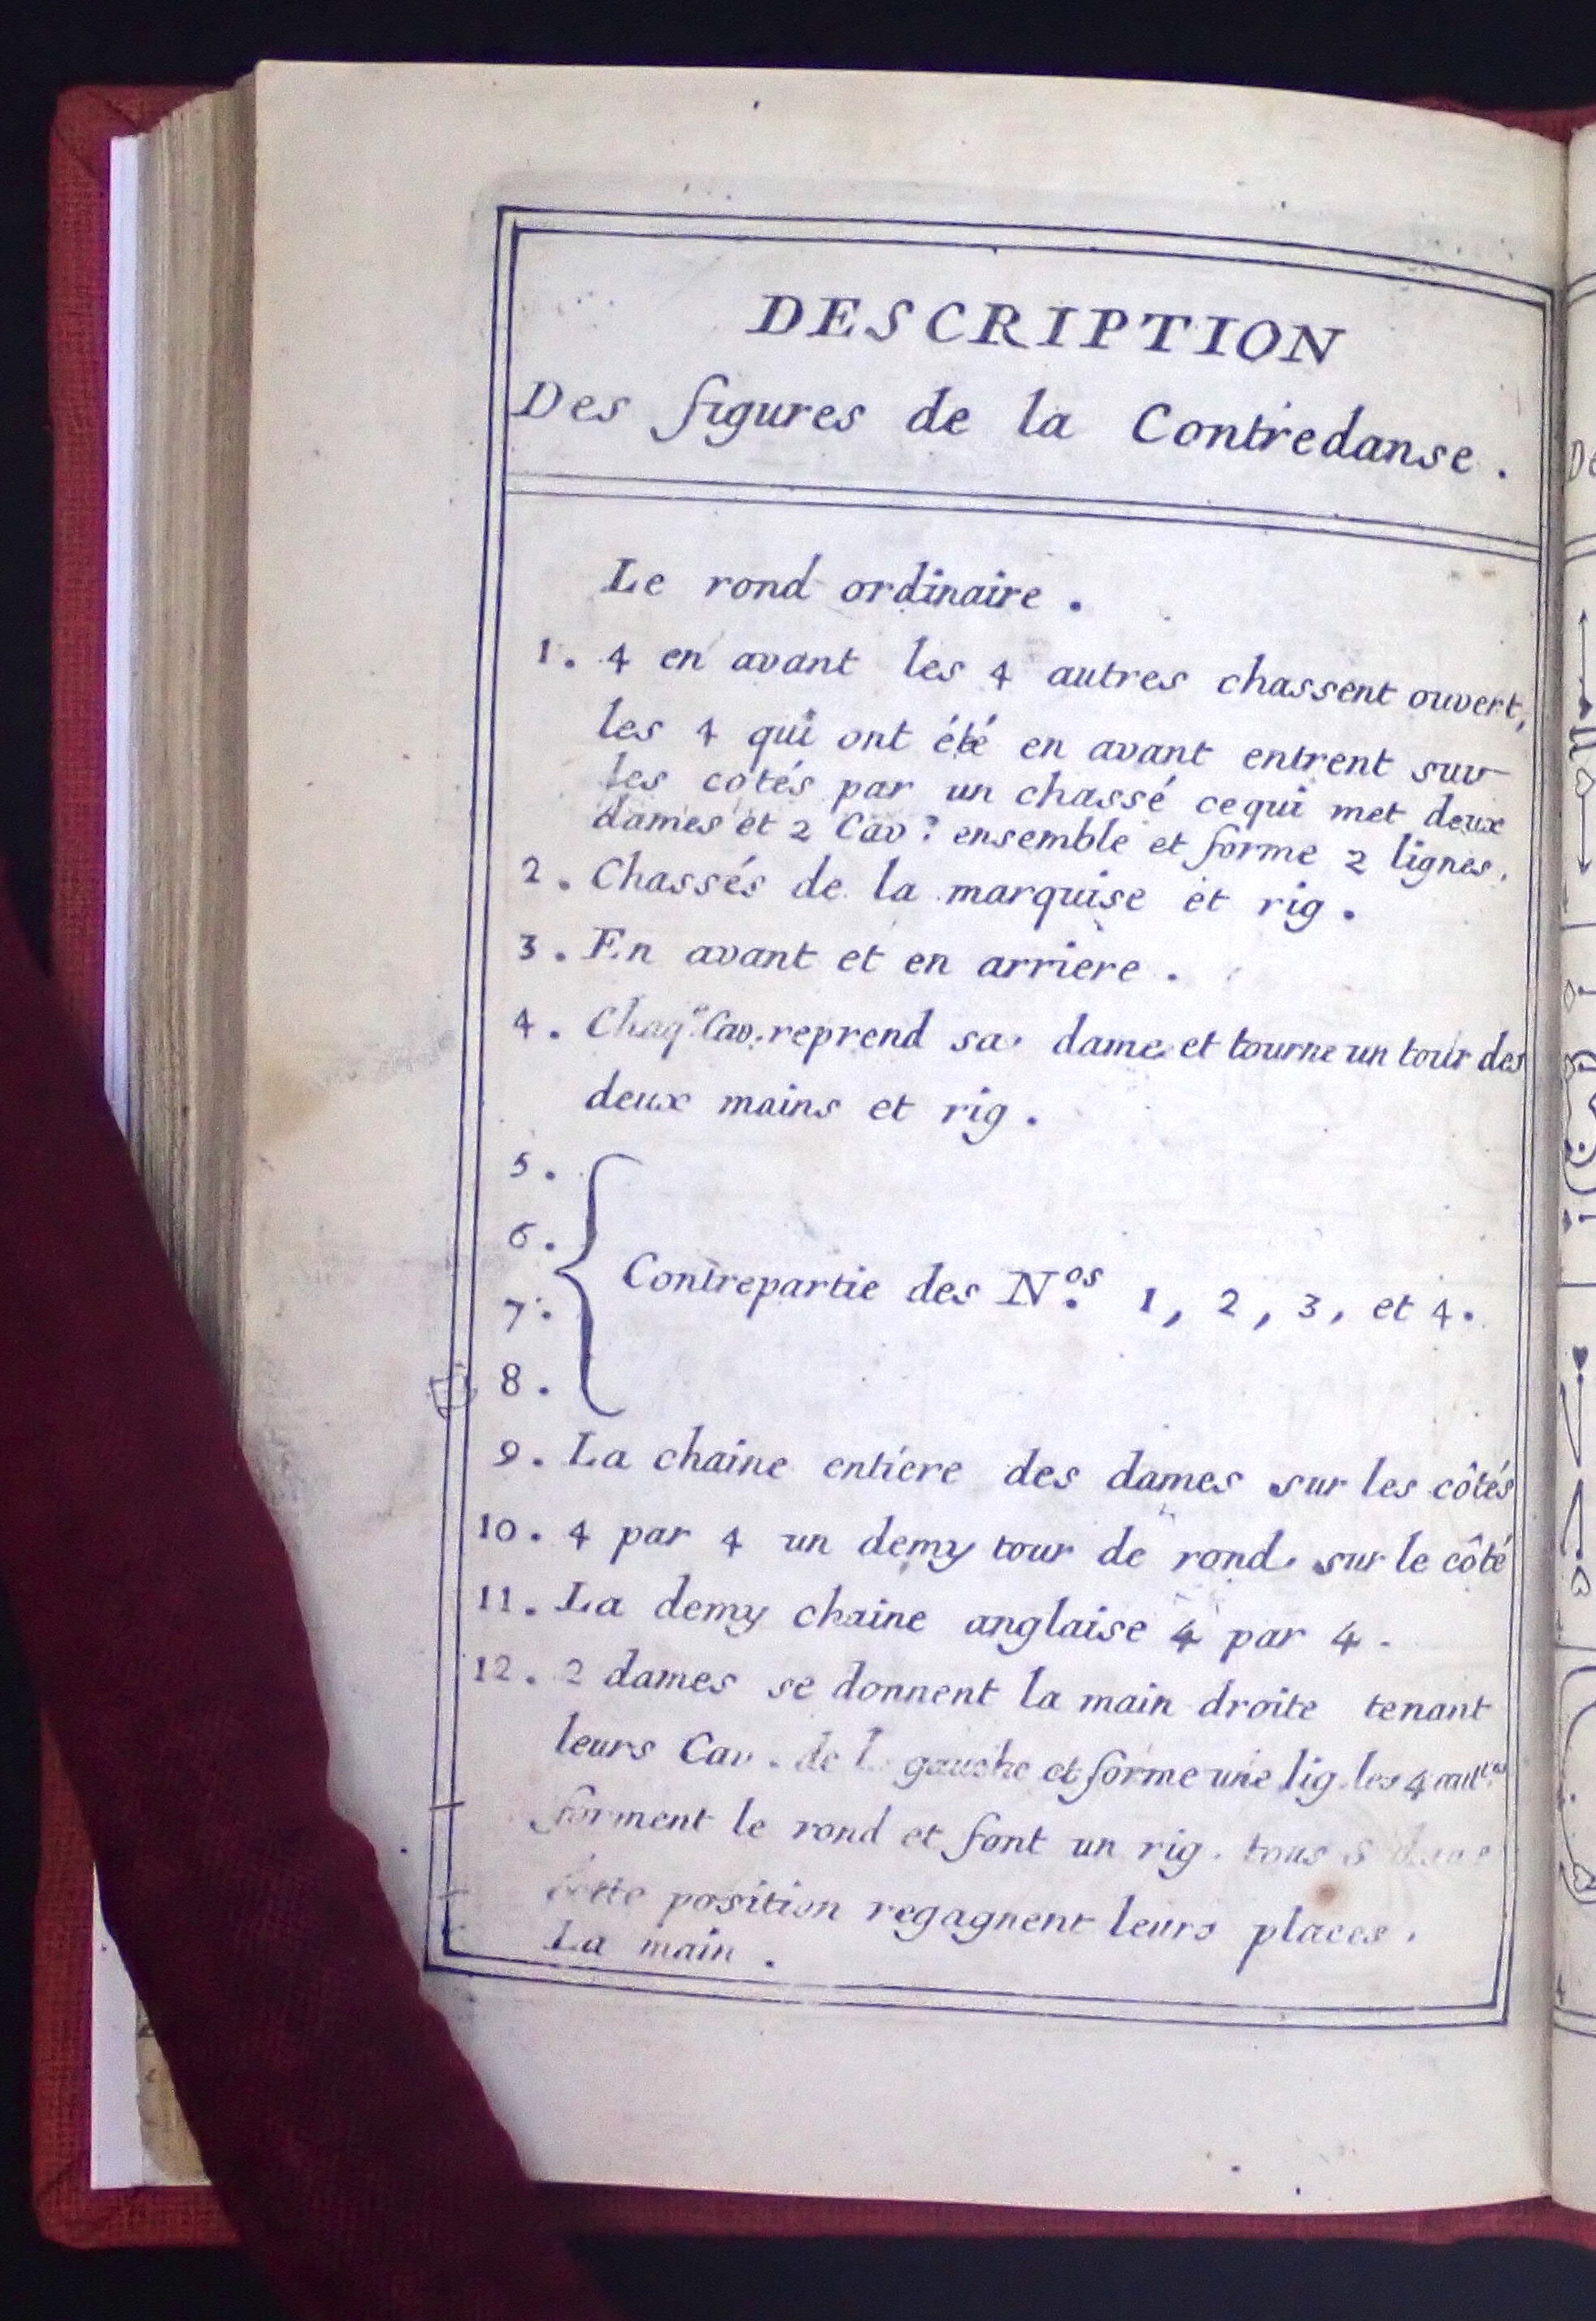 DESCRIPTION
Des figures de la Contredanse.
Le rond ordinaire.
1. 4 en avant les 4 autres chassent ouvert,
les 4 qui ont été en avant entrent sur
les cotés par un chassé cequi met deux
dames et 2 Cav? ensemble et forme 2 lignes.
2. Chassés de la marquise et rig.
3. En avant et en arriere.
4. Chaq.e Cav. reprend sa dame et tourne un tour des
deux mains et rig.
5.
6.
7.
8.
Contrepartie des N.os 1, 2, 3, et 4.
9. La chaine entiere des dames sur les côtés
10. 4 par 4 un demy tour de rond sur le côté
11. La demy chaine anglaise 4 par 4.
12. 2 dames se donnent la main droite tenant
leurs Cav. de gauche et forme une lig. les 4 autres
forment le rond et font un rig. tous 8
cette position regagnent leurs places.
La main.